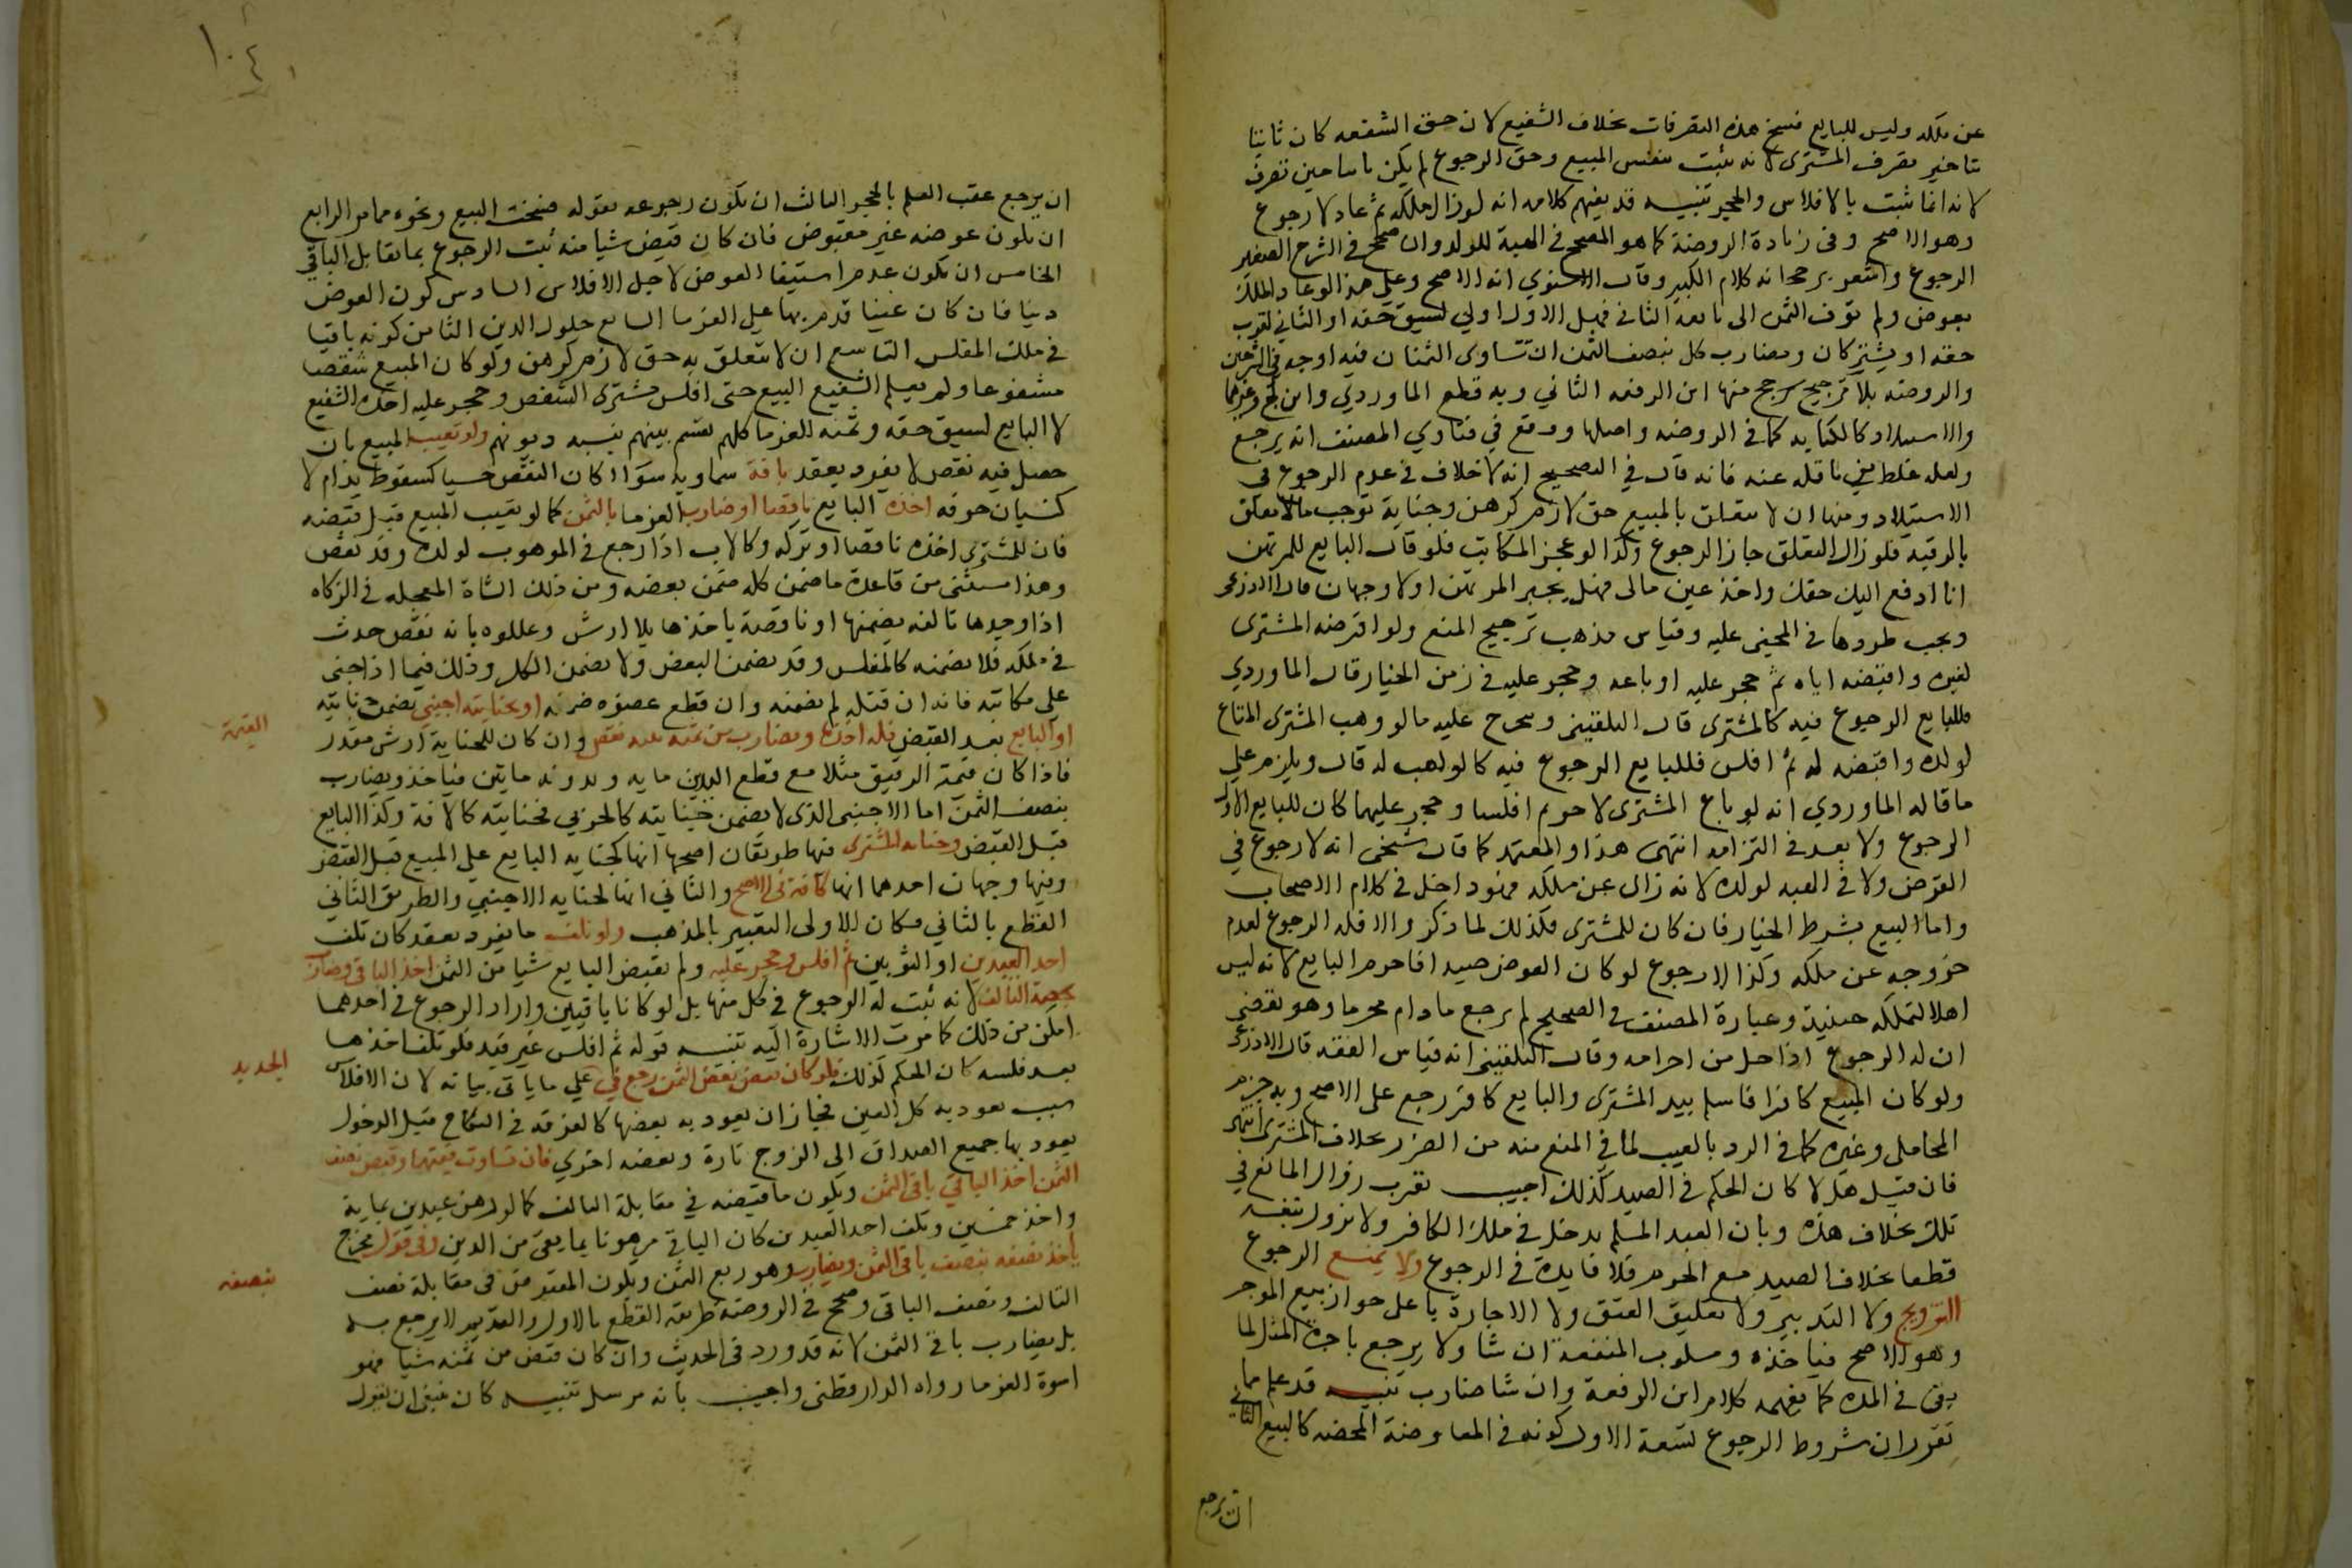 عن ملكه وليس للبايع فسخ هذه التصرفات بخلاف الشفيع لان حق الشفعه كان ثابتا
تاخير تصرف المشترى لانه يثبت بنفس المبيع وحق الرجوع لم يكن ثابتا حين تصرف
لانه انما ثبت بالافلاس والحجر تنبيه قد يفهم كلامه انه لو زال ملكه ثم عاد لا رجوع
وهو الاصح وفى زيادة الروضة كما هو المصحح فى الهبة للولد وان صحح فى الشرح الصغير
الرجوع واشعر برجحانه كلام الكبير وقال الاسنوي انه الاصح وعلى هذا لو عاد الملك
بعوض ولم توف الثمن الى بايعه الثانى فهل الاول اولي لسبق حقه او الثاني لقرب
حقه او يشتركان ويضارب كل بنصف الثمن ان تساوى الثمنان فيه اوجه فى الشرحين
والروضه بلا ترجيح رجح منها ابن الرفعه الثاني وبه قطع الماوردي وابن كج وغيرهما
والاستيلاد كالكتابه كما فى الروضه واصلها ووقع في فتاوي المصنف انه يرجع
ولعله غلط من ناقله عنه فانه قال في التصحيح انه لا خلاف فى عدم الرجوع فى
الاستيلاد ومنها ان لا يتعلق بالمبيع حق لازم كرهن وجناية توجب مالا تعلق
بالرقبة فلو زال التعلق جاز الرجوع وكذا لو عجز المكاتب فلو قال البايع للمرتهن
انا ادفع اليك حقك واخذ عين مالى فهل يجبر المرتهن او لا وجهان قال الاذرعى
ويجب طردهما فى المجنى عليه وقياس مذهب ترجيح المنع ولو اقرضه المشترى
لغيره واقبضه اياه ثم حجر عليه او باعه وحجر عليه فى زمن الخيار قال الماوردي
فللبايع الرجوع فيه كالمشترى قال البلقينى ويخرج عليه ما لو وهب المشترى المتاع
لولده واقبضه له ثم افلس فللبايع الرجوع فيه كالواهب له قال ويلزم على
ما قاله الماوردي انه لو باع المشترى لاخر ثم افلسا وحجر عليهما كان للبايع الاول
الرجوع ولا بعد فى التزامه انتهى هذا والمعتمد كما قال شيخى انه لا رجوع في
القرض ولا فى الهبه لولده لانه زال عن ملكه فهو داخل فى كلام الاصحاب
واما البيع بشرط الخيار فان كان للمشترى فكذلك لما ذكر والا فله الرجوع لعدم
خروجه عن ملكه وكذا لا رجوع لو كان العوض صيدا فاحرم البايع لانه ليس
اهلا لتملكه حينيذ وعبارة المصنف فى التصحيح لم يرجع ما دام محرما وهو يقتضى
ان له الرجوع اذا حل من احرامه وقال البلقينى انه قياس الفقه قال الاذرعى
ولو كان المبيع كافرا فاسلم بيد المشترى والبايع كافر رجع على الاصح وبه جزم
المحاملى وغيره كما فى الرد بالعيب لما في المنع منه من الضرر بخلاف المشترى انتهى
فان قيل هلا كان الحكم فى الصيد كذلك اجيب بقرب زوال المانع في
تلك بخلاف هذه وبان العبد المسلم يدخل فى ملك الكافر ولا يزول بنفسه
قطعا بخلاف الصيد مع المحرم فلا فايدة فى الرجوع ولا يمنع الرجوع
التزويج ولا التدبير ولا تعليق العتق ولا الاجارة بنا على جواز بيع الموجر
وهو الاصح فياخذه ومسلوب المنفعة ان شا ولا يرجع باجرة المثل لما
بقى فى المده كما يفهمه كلام ابن الرفعة وان شا ضارب تنبيه قد علم مما
تقرر ان شروط الرجوع تسعة الاول كونه فى المعاوضة المحضه كالبيع الثاني
ان يرجع
١٠٤
ان يرجع عقب العلم بالحجر الثالث ان يكون رجوعه بقوله فسخت البيع ونحوه مما مر الرابع
ان يكون عوضه غير مقبوض فان كان قبض شيا منه ثبت الرجوع بما يقابل الباقي
الخامس ان يكون عدم استيفا العوض لاجل الافلاس السادس كون العوض
دينا فان كان عينا قدم بها على الغرما السابع حلول الدين الثامن كونه باقيا
في ملك المفلس التاسع ان لا يتعلق به حق لازم كرهن ولو كان المبيع شقصا
مشفوعا ولم يعلم الشفيع البيع حتى افلس مشترى الشقص وحجر عليه اخذه الشفيع
لا البايع لسبق حقه وثمنه للغرما كلهم يقسم بينهم بنسبه ديونهم ولو تعيب المبيع بان
حصل فيه نقص لا يفرد بعقد بافة سماويه سوا اكان النقص حسيا كسقوط يد ام لا
كنسيان حرفه اخذه البايع ناقصا او ضارب الغرما بالثمن كما لو تعيب المبيع قبل قبضه
فان للمشترى اخذه ناقصا او تركه وكالاب اذا رجع فى الموهوب لولده وقد نقص
وهذا مستثنى من قاعدة ما ضمن كله ضمن بعضه ومن ذلك الشاة المعجله فى الزكاه
اذا وجدها تالفه يضمنها او ناقصة ياخذها بلا ارش وعللوه بانه نقص حدث
فى ملكه فلا يضمنه كالمفلس وقد يضمن البعض ولا يضمن الكل وذلك فيما اذا جنى
على مكاتبه فانه ان قتله لم يضمنه وان قطع عضوه ضمنه او بجناية اجنبي يضمن جنايته
او البايع بعد القبض فله اخذه ويضارب من ثمنه بنسبه نقص وان كان للجناية ارش مقدر
القيمة
فاذا كان قيمة الرقيق مثلا مع قطع اليدين مايه وبدونه مايتين فياخذه ويضارب
بنصف الثمن اما الاجنبى الذى لا يضمن جنايته كالحربي فجنايته كالافة وكذا البايع
قبل القبض وجنايه المشترى فيها طريقان اصحها انها كجنايه البايع على المبيع قبل القبض
وفيها وجهان احدهما انها كافة فى الاصح والثاني انها كجنايه الاجنبي والطريق الثاني
القطع بالثاني فكان الاولى التعبير بالمذهب ولو تلف ما يفرد بعقد كان تلف
احد العبدين او الثوبين ثم افلس وحجر عليه ولم يقبض البايع شيا من الثمن اخذ الباقى وضارب
بحصة التالف لانه ثبت له الرجوع فى كل منها بل لو كانا باقيين واراد الرجوع فى احدهما
امكن من ذلك كما مرت الاشارة اليه تنبيه قوله ثم افلس غير قيد فلو تلف احدهما
بعد فلسه كان الحكم كذلك فلو كان قبض بعض الثمن رجع في على ما ياتى بيانه لان الافلاس
الجديد
سبب يعود به كل العين فجاز ان يعود به بعضها كالفرقه فى النكاح قبل الدخول
يعود بها جميع الصداق الى الزوج تارة وبعضه اخري فان تساوت قيمتهما وقبض نصف
الثمن اخذ الباقي بباقى الثمن ويكون ما قبضه في مقابلة التالف كما لو رهن عبدين بماية
واخذ خمسين وتلف احد العبدين كان الباقي مرهونا بما بقى من الدين وفى قول مخرج
ياخذ نصفه بنصف باقى الثمن ويضارب وهو ربع الثمن ويكون المقبوض فى مقابلة نصف
بنصفه
التالف ونصف الباقى وصحح فى الروضة طريقه القطع بالاول والقديم لا يرجع به
بل يضارب بباقى الثمن لانه قد ورد فى الحديث وان كان قبض من ثمنه شيا فهو
اسوة الغرما رواه الدارقطنى واجيب بانه مرسل تنبيه كان ينبغى ان يقول